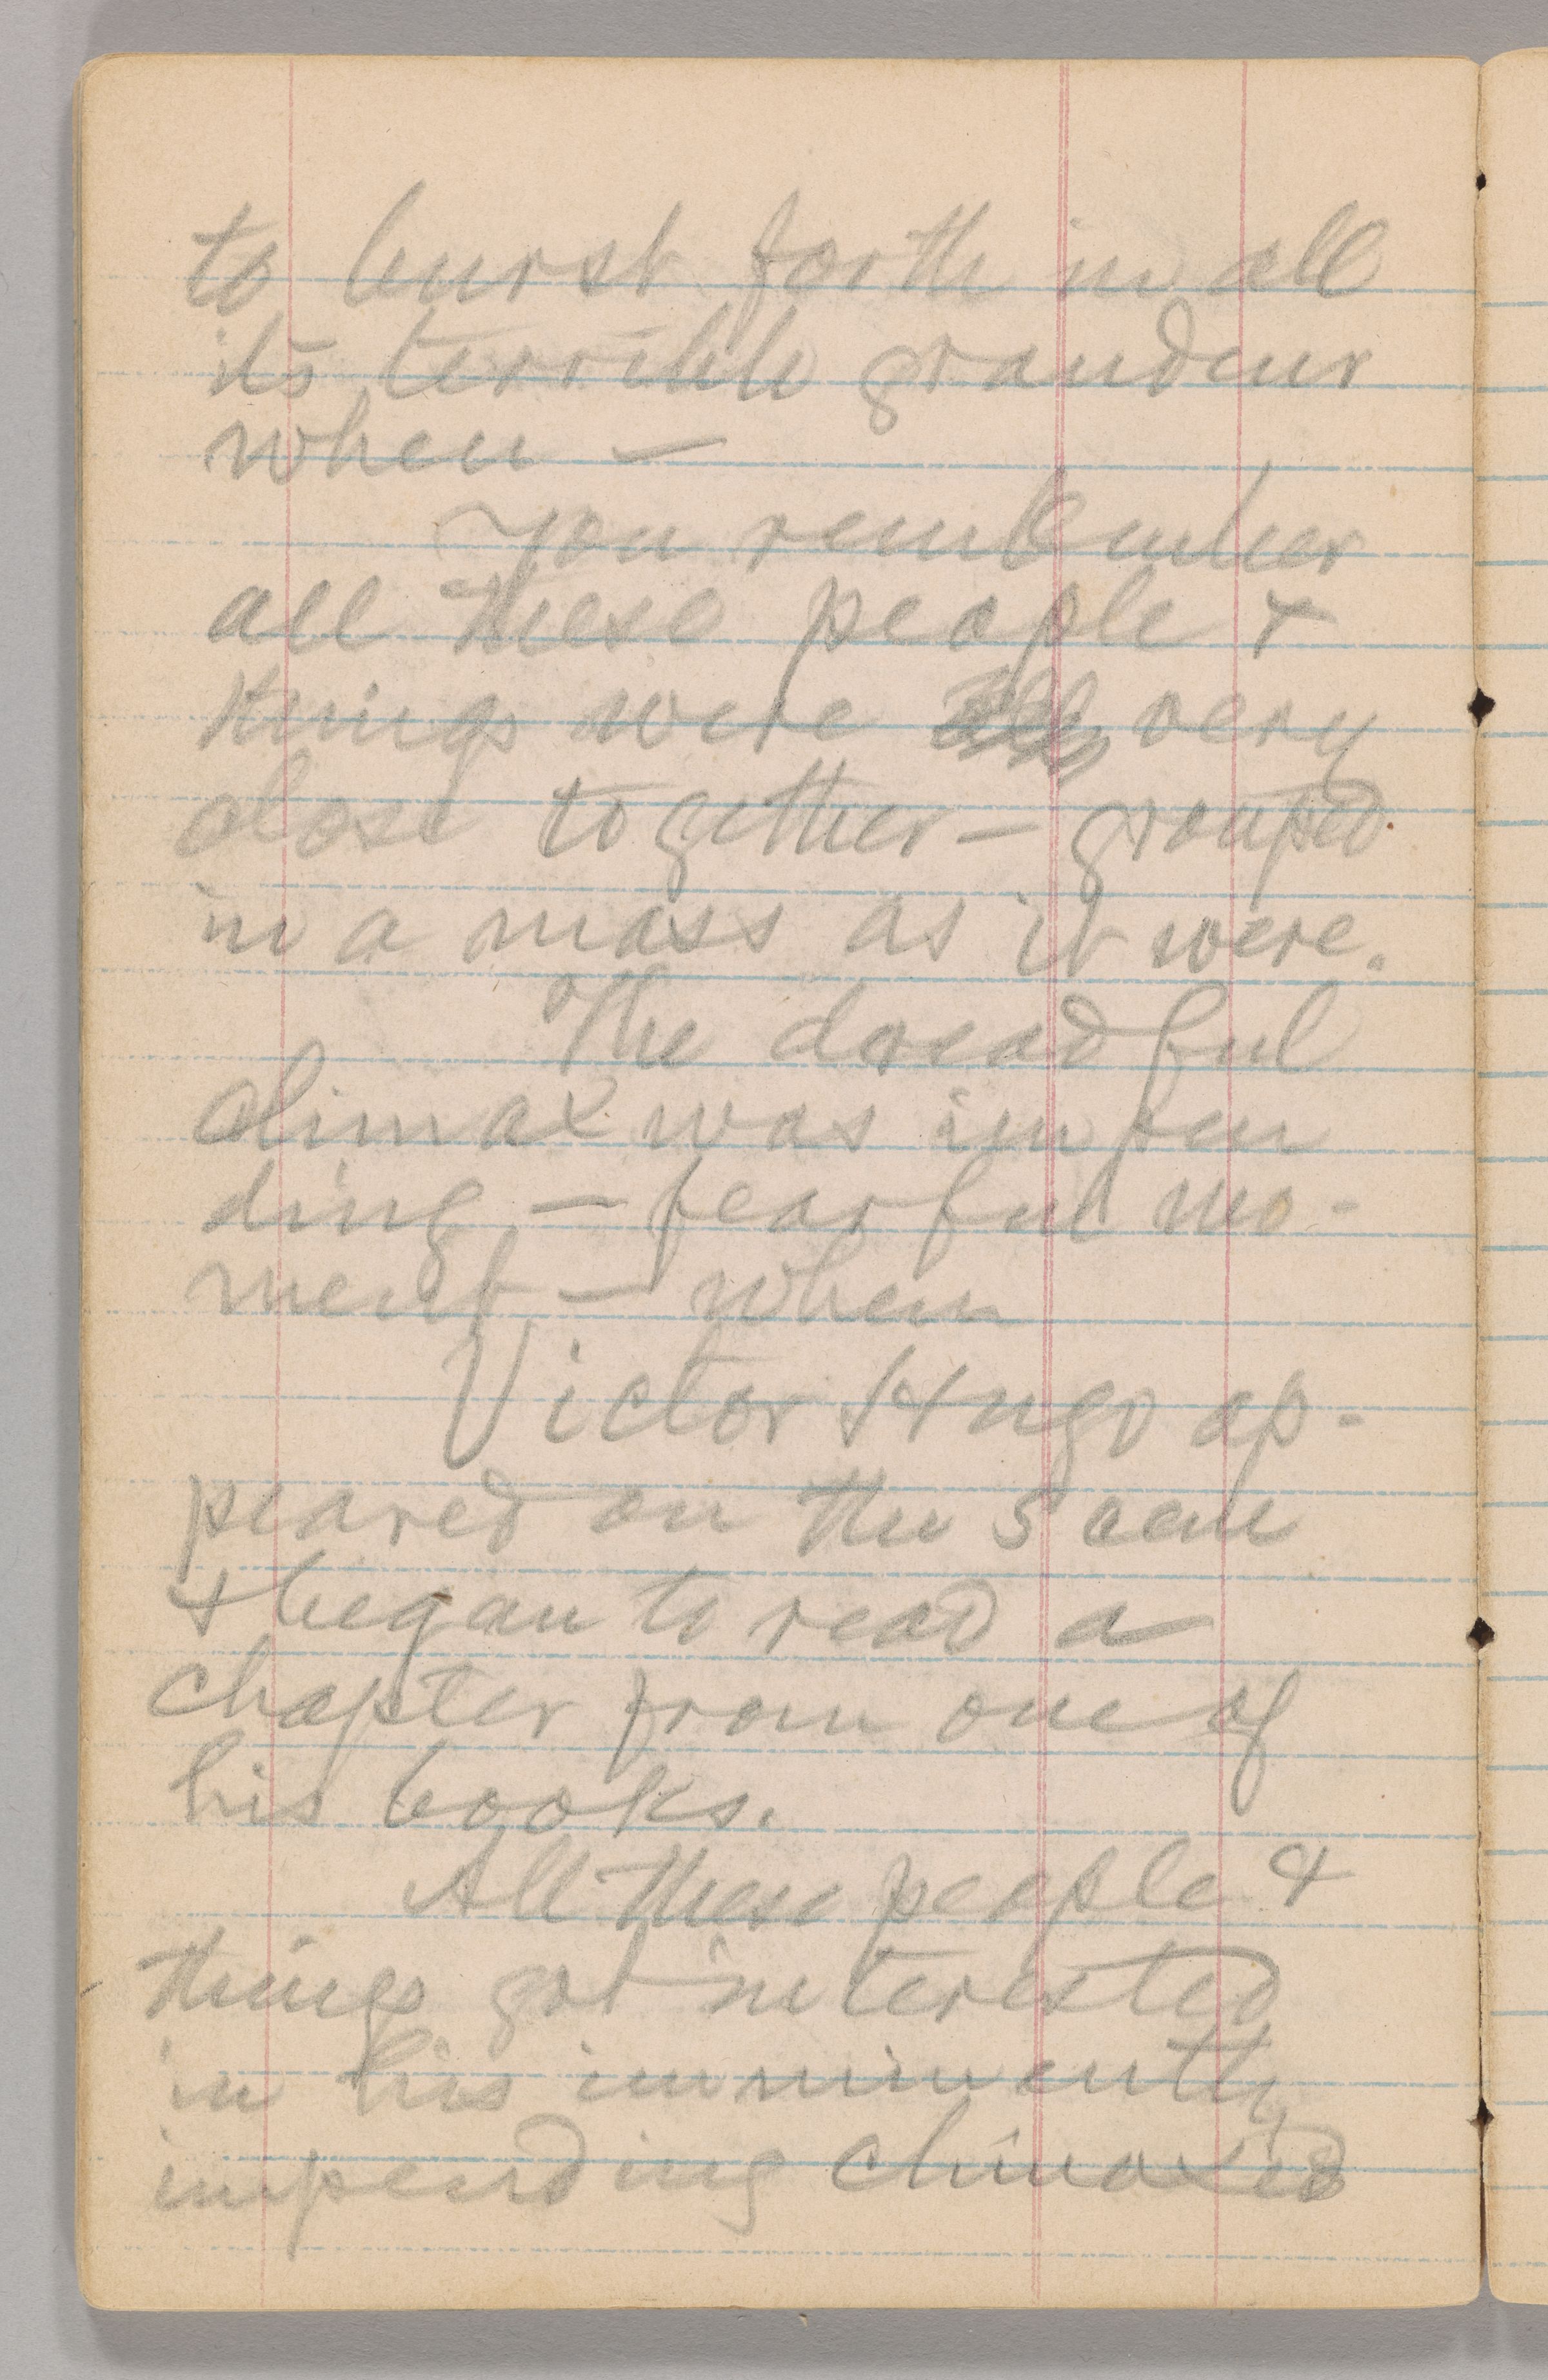 to burst forth in all
its terrible grandeur
when —
You remember
all these people &
things were all very
close together — grouped
in a mass as it were.
The dreadful
climax was impen
ding — fearful mo-
ment — when
Victor Hugo ap-
peared on the scene
& began to read a
chapter from one of
his books.
All these people &
things got interested
in his imminently
impending climaxes